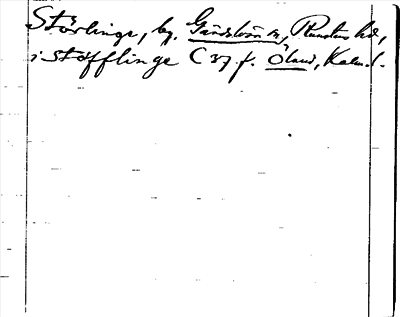 Störlinge, by, Gärdslösa sn, Runsten hd,
i Stöfflinge C 37 f. Öland, Kalm. l.